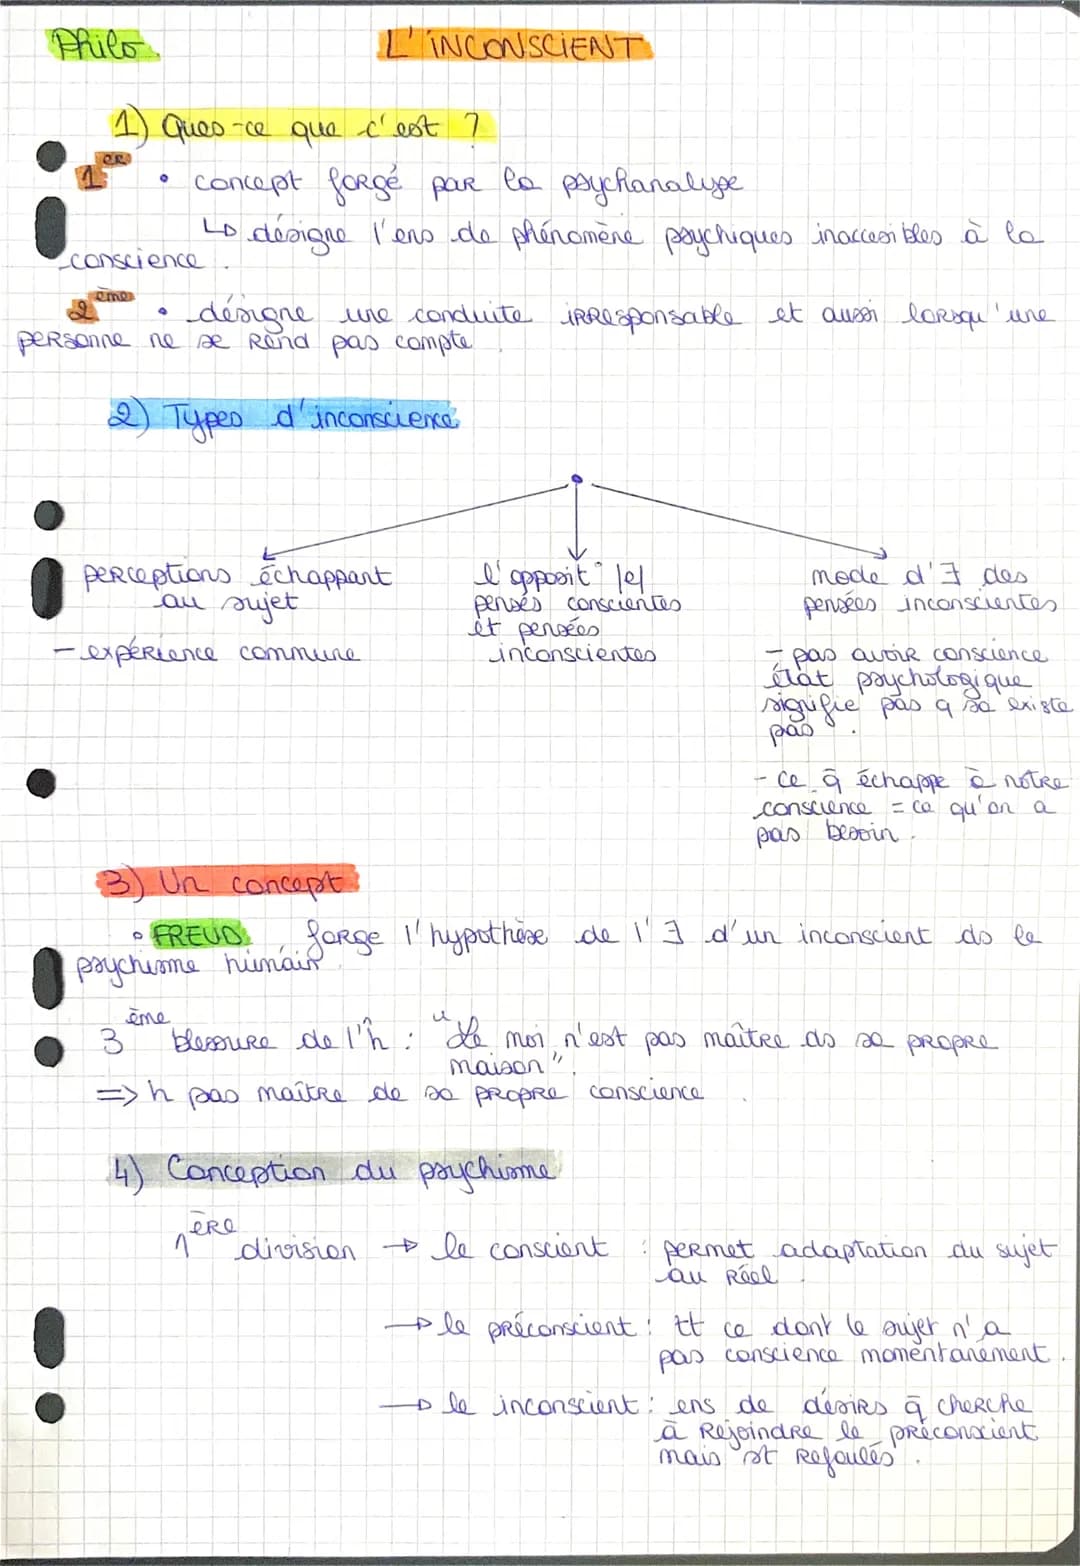 Philo.
L'INCONSCIENT
1) Ques-ce que c'est ?
1er • concept forgé par la psychanalyse
↳ désigne l'ens de phénomène psychiques inaccesibles à la
conscience.
2ème • désigne une conduite irresponsable et aussi lorsqu'une
personne ne se rend pas compte.
2) Types d'inconscience
perceptions échappant
au sujet
- expérience commune
l'opposit° /e/
pensés conscientes
et pensées
inconscientes
mode d'∃ des
pensées inconscientes
- pas avoir conscience
état psychologique
signifie pas q sa existe
pas.
- ce q̄ échappe à notre
conscience = ce qu'on a
pas besoin.
3) Un concept
• FREUD forge l'hypothèse de l'∃ d'un inconscient ds le
psychisme humain.
3ème blessure de l'ĥ : "Le moi n'est pas maître ds sa propre
maison".
=> h pas maître de sa propre conscience.
4) Conception du psychisme
1ÈRE division → le conscient : permet adaptation du sujet
au réel.
→ le préconscient : tt ce dont le sujet n'a
pas conscience momentanément.
→ le inconscient : ens de désirs q̄ cherche
à rejoindre le préconscient
mais st refoulés.